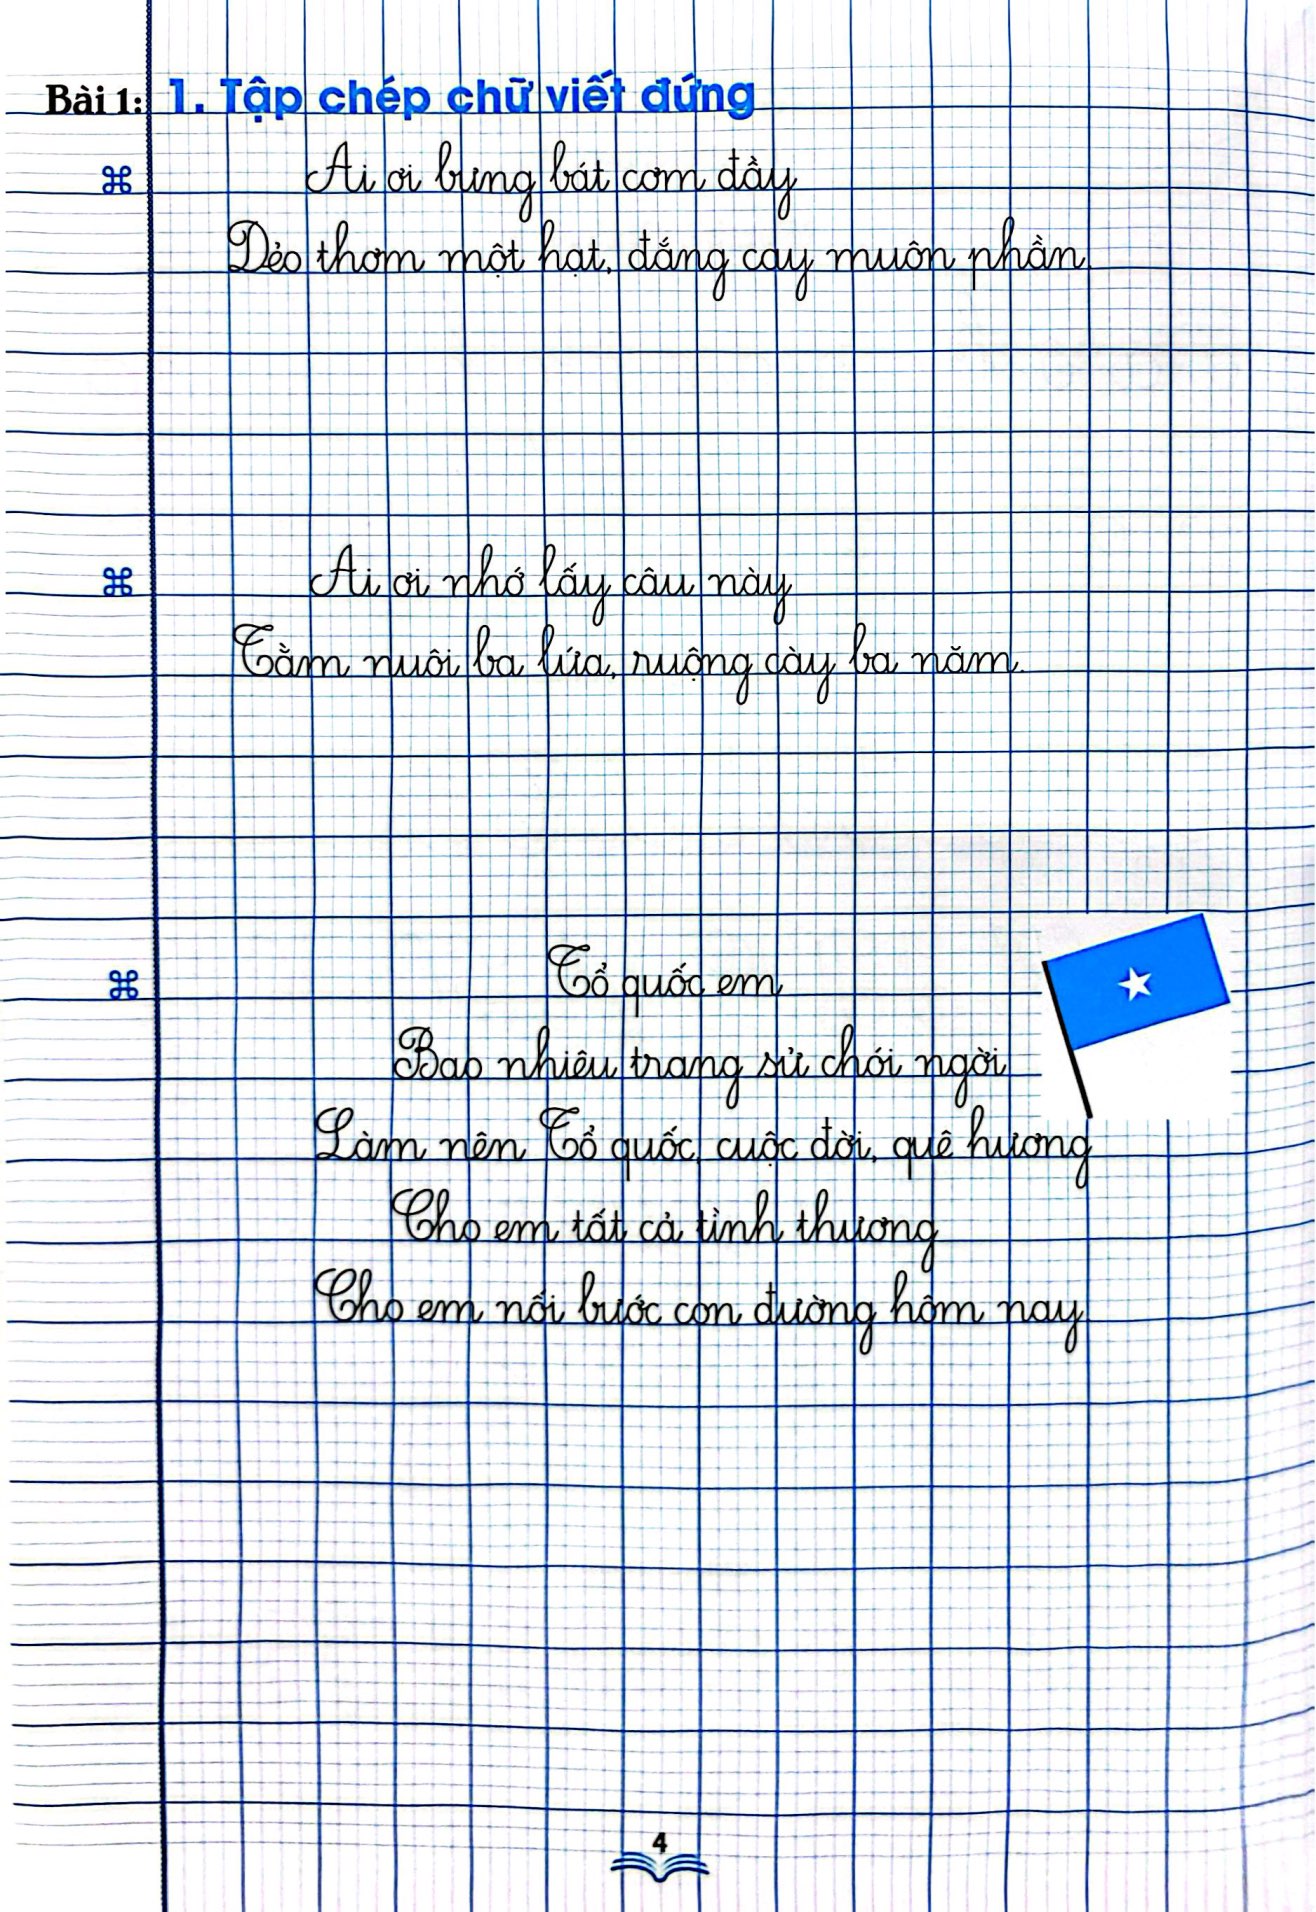 Bài 1: 1. Tập chép chữ viết đứng
Ai ơi bưng bát cơm đầy
Dẻo thơm một hạt, đắng cay muôn phần.
Ai ơi nhớ lấy câu này
Tằm nuôi ba lứa, ruộng cày ba năm.
Tổ quốc em
Bao nhiêu trang sử chói ngời
Làm nên Tổ quốc, cuộc đời, quê hương
Cho em tất cả tình thương
Cho em nối bước con đường hôm nay
4